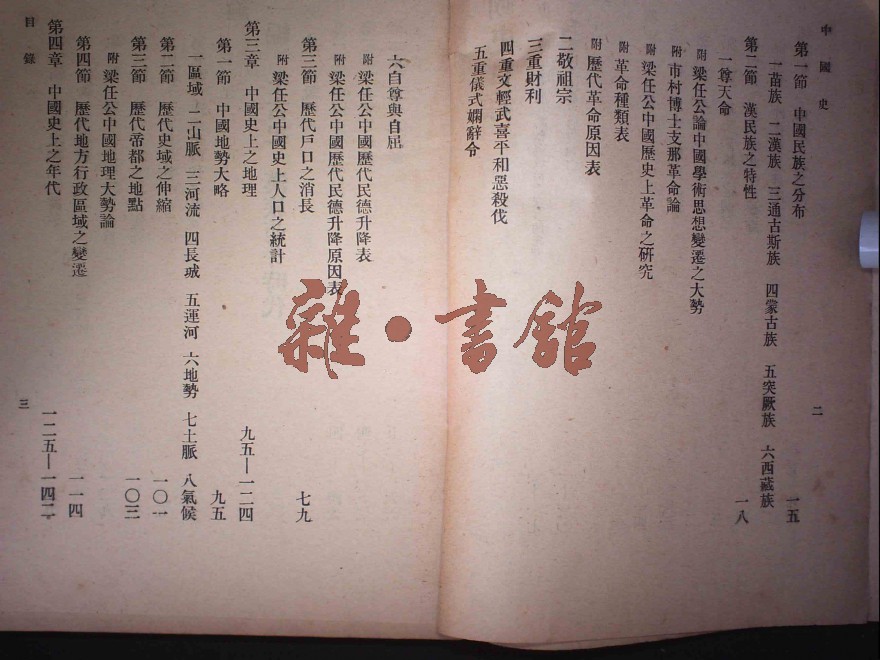 中國史
二
第一節　中國民族之分布　一五
一苗族　二漢族　三通古斯族　四蒙古族　五突厥族　六西藏族
第二節　漢民族之特性　一八
一尊天命
附　梁任公論中國學術思想變遷之大勢
附　市村博士支那革命論
附　梁任公中國歷史上革命之研究
附　革命種類表
附　歷代革命原因表
二敬祖宗
三重財利
四重文輕武喜平和惡殺伐
五重儀式嫻辭令
六自尊與自屈
附　梁任公中國歷代民德升降表
附　梁任公中國歷代民德升降原因表
第三節　歷代戶口之消長　七九
附　梁任公中國史上人口之統計
第三章　中國史上之地理　九五—一二四
第一節　中國地勢大略　九五
一區域　二山脈　三河流　四長城　五運河　六地勢　七土脈　八氣候
第二節　歷代史域之伸縮　一〇一
第三節　歷代帝都之地點　一〇三
附　梁任公中國地理大勢論
第四節　歷代地方行政區域之變遷　一一四
第四章　中國史上之年代　一二五—一四二
目錄
三
雜·書館